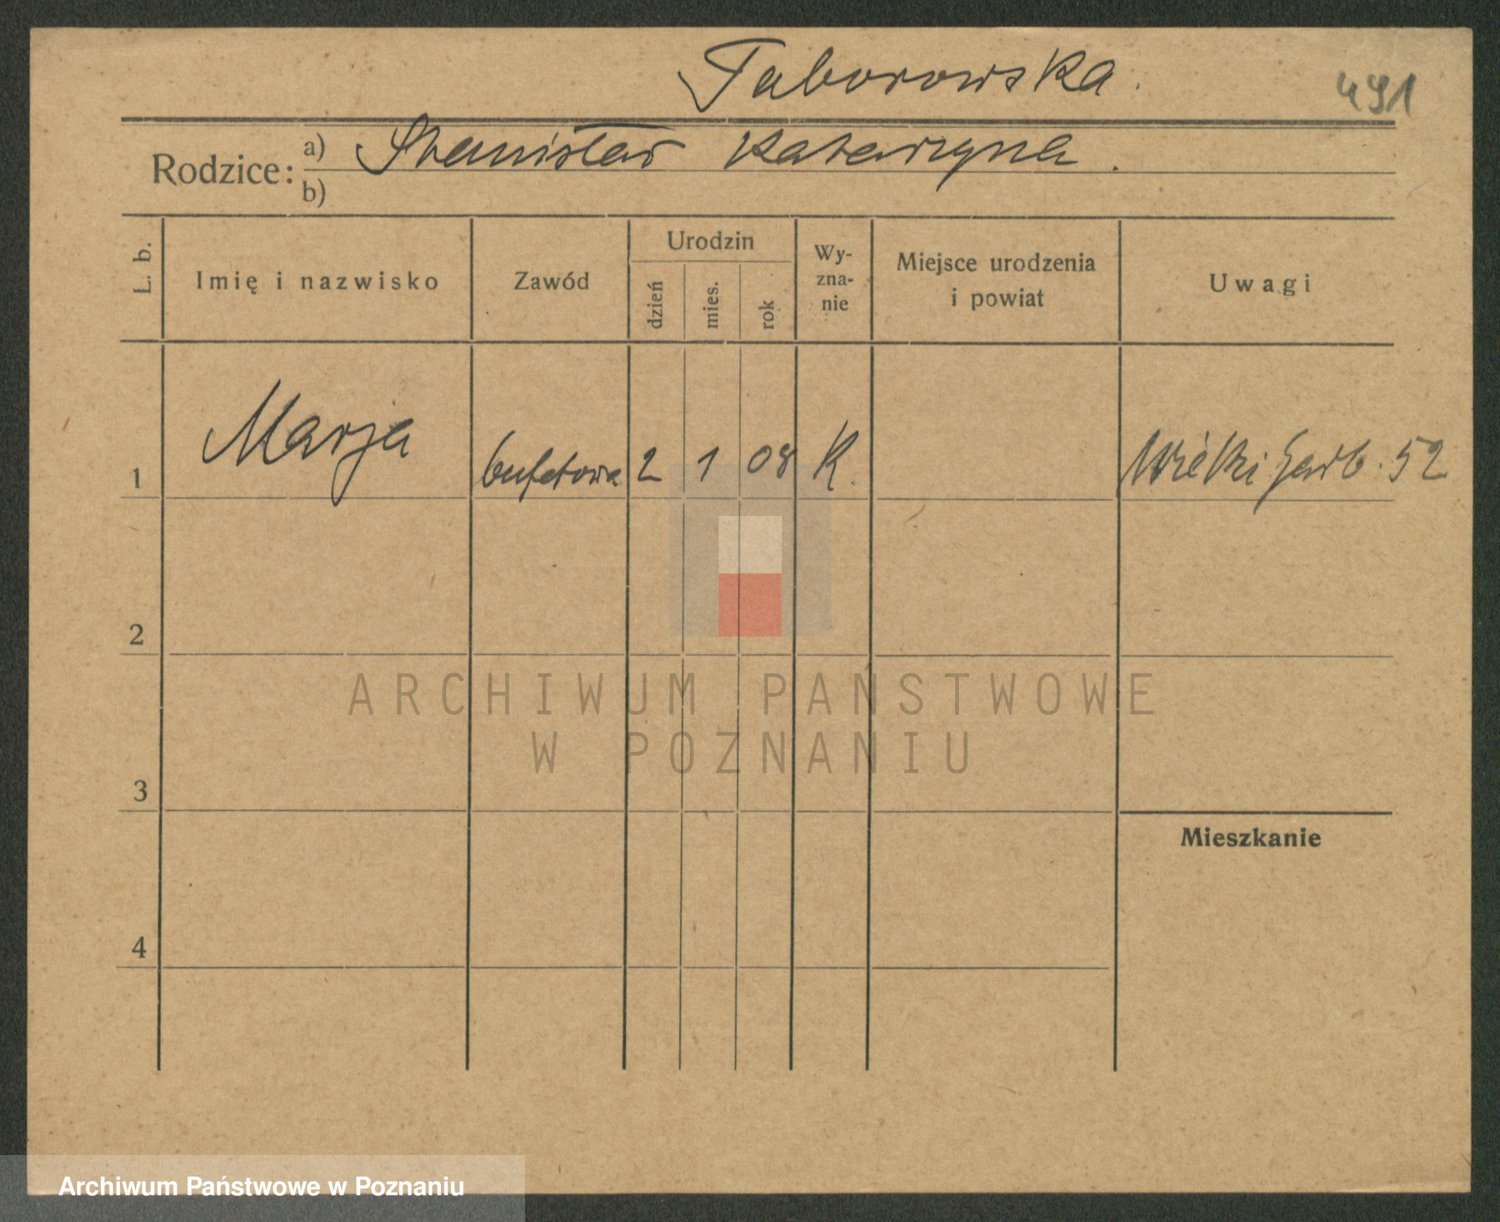 Taborowska.
491
Rodzice: a) Stanisław Katarzyna.
b)
L. b.
Imię i nazwisko
Zawód
Urodzin
dzień
mies.
rok
Wy-
zna-
nie
Miejsce urodzenia
i powiat
Uwagi
1 Marja bufetowa 2 1 08 K. Wielki Garb. 52
2
ARCHIWUM PAŃSTWOWE
W POZNANIU
3
Mieszkanie
4
Archiwum Państwowe w Poznaniu